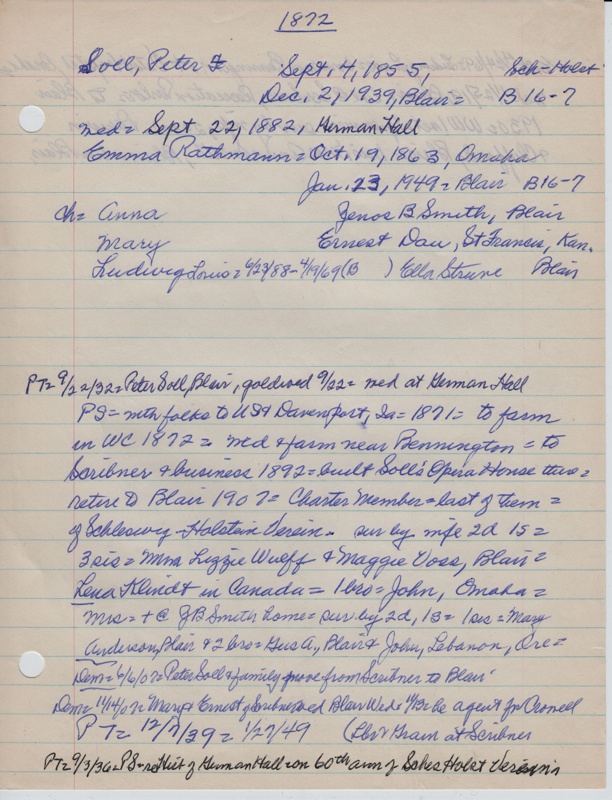 1872
Soll, Peter F Sept. 4, 1855, Sch-Holst
Dec. 2, 1939, Blair = B 16-7
med = Sept 22, 1882, Herman Hall
Emma Rathmann = Oct. 19, 1863, Omaha
Jan. 23, 1949 = Blair B16-7
Ch = Anna Jenos B. Smith, Blair
Mary Ernest Dau, St Francis, Kan.
Ludwig Louis = 6/23/88 - 4/19/69 (B ) Ella Struve Blair
PT = 9/22/32 = Peter Soll, Blair, goldwed 9/22 = med at German Hall
PS = wth folks to USA Davenport, Ia = 1871 = to farm
in WC 1872 = med & farm near Bennington = to
Scribner & business 1892 = built Soll's Opera House there =
retire to Blair 1907 = Charter Member = last of them =
of Schleswig-Holstein Verein. sur by wife 2d 1s =
3 sis = Mmes Lizzie Wulff & Maggie Voss, Blair =
Lena Klindt in Canada = 1 bro = John, Omaha =
Mrs = + @ JB Smith home = sur. by 2d, 1s = 1 sis = Mary
Anderson, Blair & 2 bro = Gus A., Blair & John, Lebanon, Ore =
Dem = 6/6/07 = Peter Soll & family move from Scribner to Blair
Dem = 11/14/07 = Mary & Ernest of Scribner wed Blair Wed = 11/13 = he agent for Crowell
PT = 12/7/39 = 1/27/49 (Lbr & Grain at Scribner
PT = 9/3/36 = PS = re Hist of German Hall = on 60th ann of Schles Holst Verein's